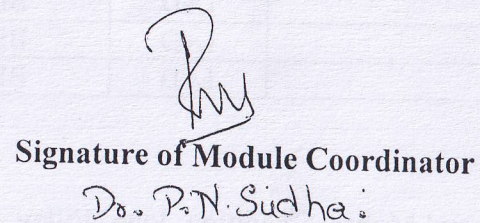 Signature of Module Coordinator
Dr. P.N. Sudha.